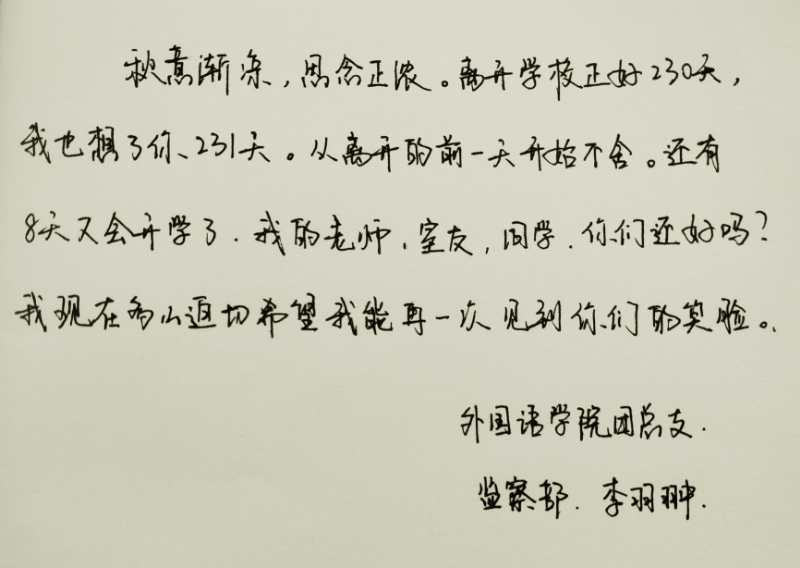 秋意渐深，思念正浓。离开学校正好230天，
我也想了你、231天。从离开的前一天开始不舍。还有
8天又会开学了．我的老师、室友，同学．你们还好吗？
我现在多么迫切希望我能再一次见到你们的笑脸。
外国语学院团总支．
监察部．李羽翀．